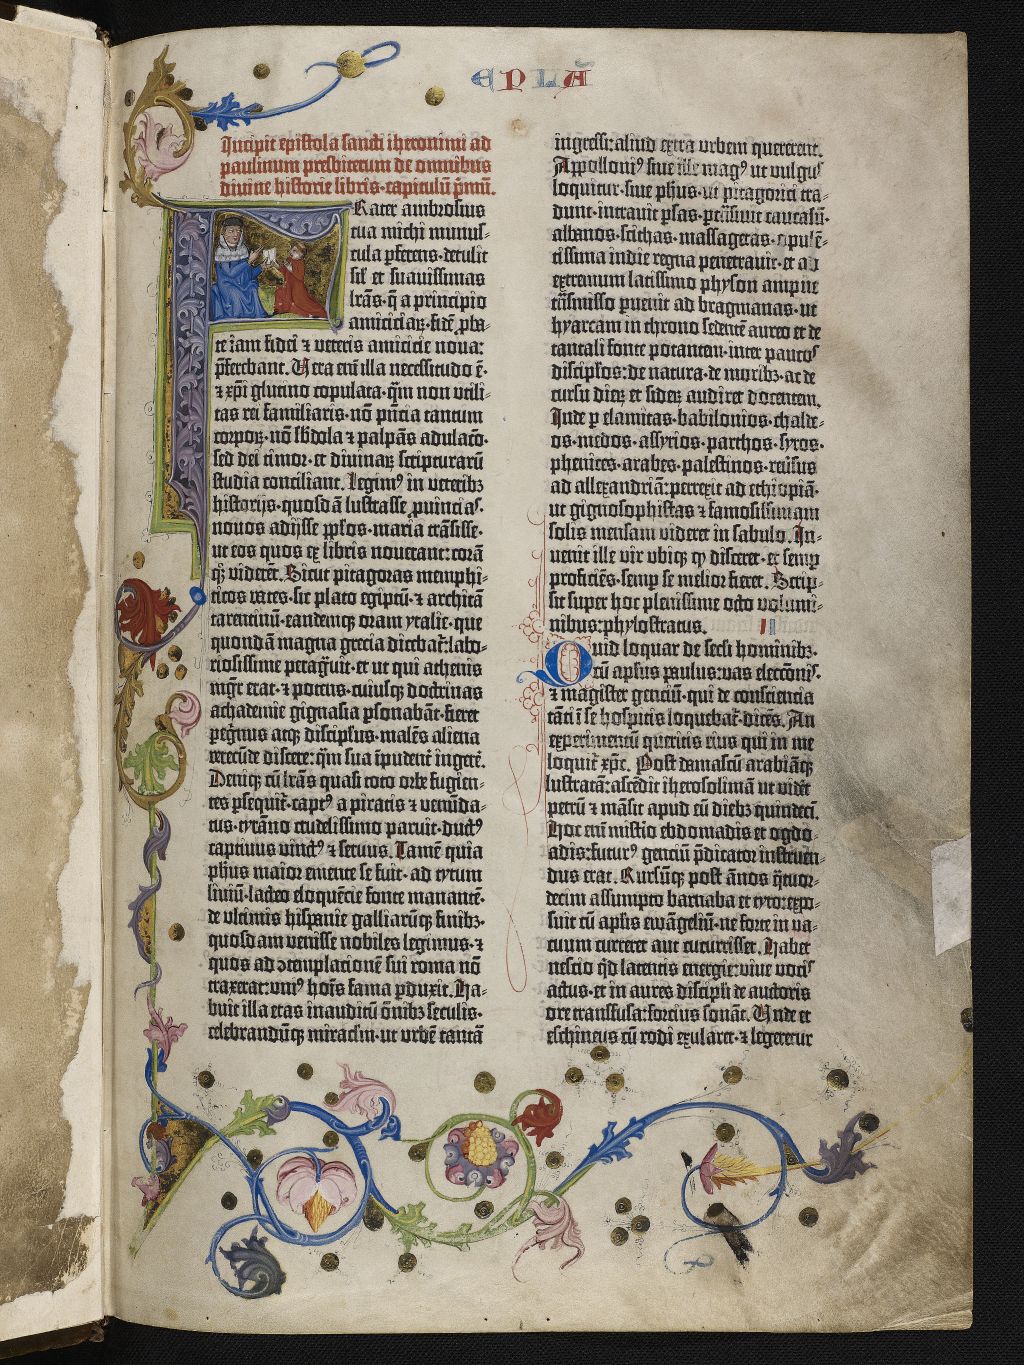 EPLA
Incipit epistola sancti iheronimi ad
paulinum presbiterum de omnibus
divine historie libris. capitulū p̄mū.
Frater ambrosius
tua michi munus-
cula p̲ferens. detulit
sil̄ et suavissimas
lr̄as. q̄ a principio
amiciciaꝝ. fidē ꝓba-
te iam fidei ⁊ veteris amicicie nova:
p̄ferebant. Vera enī illa necessitudo ē.
⁊ xp̄i glutino copulata. q̄m non utili-
tas rei familiaris. nō p̄ncia tantum
corpoꝝ. nō s̄bdola ⁊ palpās adulacō.
sed dei timor. et divinaꝝ scripturarū
studia conciliant. Legimꝰ in veteribꝫ
historijs. quosdā lustrasse ꝓvincias.
novos adijsse pp̄los. maria trāsisse.
ut eos quos ex libris noverant: corā
qꝫ viderēt. Sicut pitagoras memphi-
ticos vates. sic plato egiptū. ⁊ architā
tarentinū. eandemqꝫ oram ytalie. que
quondā magna grecia dicebat̄: labo-
riosissime peragͣvit. et ut qui athenis
mgr̄ erat. ⁊ potens. cuiusqꝫ doctrinas
achademie gignasia p̲sonabāt. fieret
pegͥnus atqꝫ discipl̄us. malēs aliena
verecūde discere: q̄m sua īpudent̄ ingerē.
Deniqꝫ cū lr̄as quasi toto orbe fugien-
tes p̲sequit̄. captꝰ a piratis ⁊ venūda-
tus. tyrāno crudelissimo paruit. ductꝰ
captivus vinctꝰ ⁊ servus. Tamē quia
ph̄us maior emente se fuit. ad tytum
liviū. lacteo eloquēcie fonte manantē.
de ultimis hispanie galliarūqꝫ finibꝫ.
quosdam venisse nobiles legimus. ⁊
quos ad ꝯtemplacionē sui roma nō
traxerat: uniꝰ hoīs fama p̲duxit. Ha-
buit illa etas inauditū ōnibꝫ seculis.
celebrandūqꝫ miracl̄m. ut urbē tantā
ingressi: aliud extra urbem quererent.
Appolloniꝰ sive ille magꝰ ut vulgus
loquitur. sive ph̄us. ut pitagorici tra-
dunt. intravit p̲sas. p̲trāsivit caucasū.
albanos. scithas. massagetas. opulē-
tissima indie regna penetravit. et ad
extremum latissimo physon ampne
trāsmisso p̲venit ad bragmanas. ut
hyarcam in throno sedentē aureo et de
tantali fonte potantem. inter paucos
discipl̄os: de natura. de moribꝫ. ac de
cursu dieꝝ et sideꝝ audiret docentem.
Inde p̲ elamitas. babilonios. chalde-
os. medos. assyrios. parthos. syros.
phenices. arabes. palestinos. reūsus
ad allexandriā: perrexit ad ethiopiā.
ut gignosophistas ⁊ famosissimam
solis mensam videret in sabulo. In-
venit ille vir ubiqꝫ qꝫ disceret. et semp̲
proficiēs. semp̲ se melior fieret. Scrip-
sit super hoc plenissime octo volumi-
nibus: phylostratus. II
Quid loquar de secli hominibꝫ.
cū apl̄us paulus: vas elecc̄onis.
⁊ magister genciū. qui de consciencia
tāti ī se hospitis loquebat̄. dicēs. An
experimentū queritis eius qui in me
loquit̄ xp̄c. Post damascū arabiāqꝫ
lustratā: ascēdit iherosolimā ut videt̄
petrū ⁊ māsit apud eū diebꝫ quindecī.
Hoc enī misterio ebdomadis et ogdo-
adis: futurꝰ genciū p̄dicator instruen-
dus erat. Rursūqꝫ post ānos qͣtuor-
decim assumpto barnaba et tyto: expo-
suit cū apl̄is ewāgeliū. ne forte in va-
cuum curreret aut cucurrisset. Habet
nescio qͥd latentis energie: vive vocis
actus. et in aures discipli de auctoris
ore transfusa: forcius sonāt. Unde et
eschineus cū rodi exularet. ⁊ legeretur